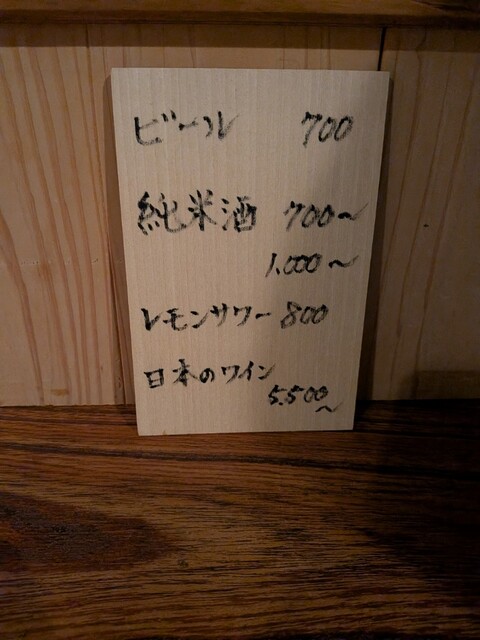 ビール 700
純米酒 700〜
1.000〜
レモンサワー 800
日本のワイン
5.500〜